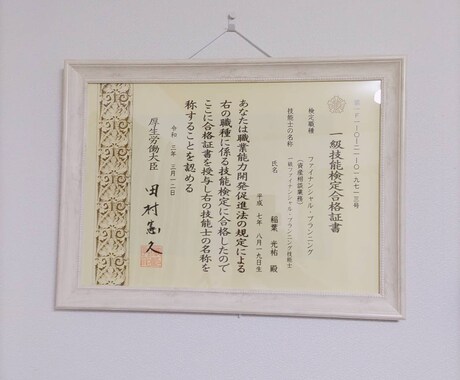 一級技能検定合格証書
検定職種
ファイナンシャル・プランニング
(資産相談業務)
技能士の名称
一級ファイナンシャル・プランニング技能士
氏名
稲葉 光祐 殿
平成 七年 八月 一九日生
あなたは職業能力開発促進法の規定による
右の職種に係る技能検定に合格したので
ここに合格証書を授与し右の技能士の名称を
称することを認める
令和 三年 三月一二日
厚生労働大臣
田村憲久